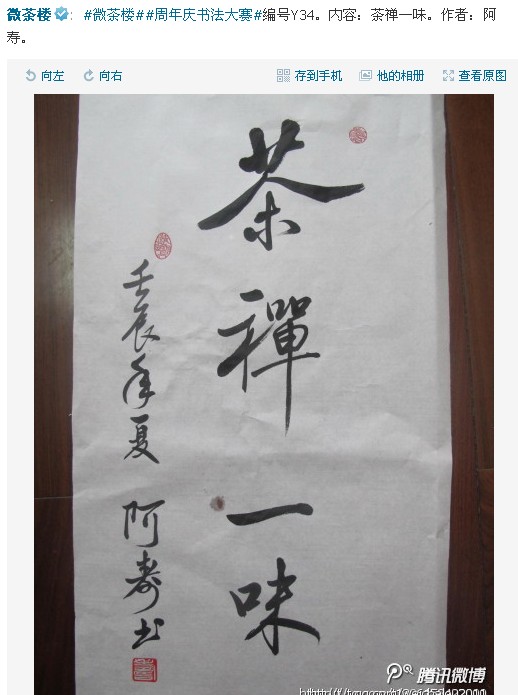 微茶楼: #微茶楼##周年庆书法大赛#编号Y34。内容：茶禅一味。作者：阿
寿。
向左 向右 存到手机 他的相册 查看原图
茶禪一味
壬辰年夏 阿寿书
腾讯微博